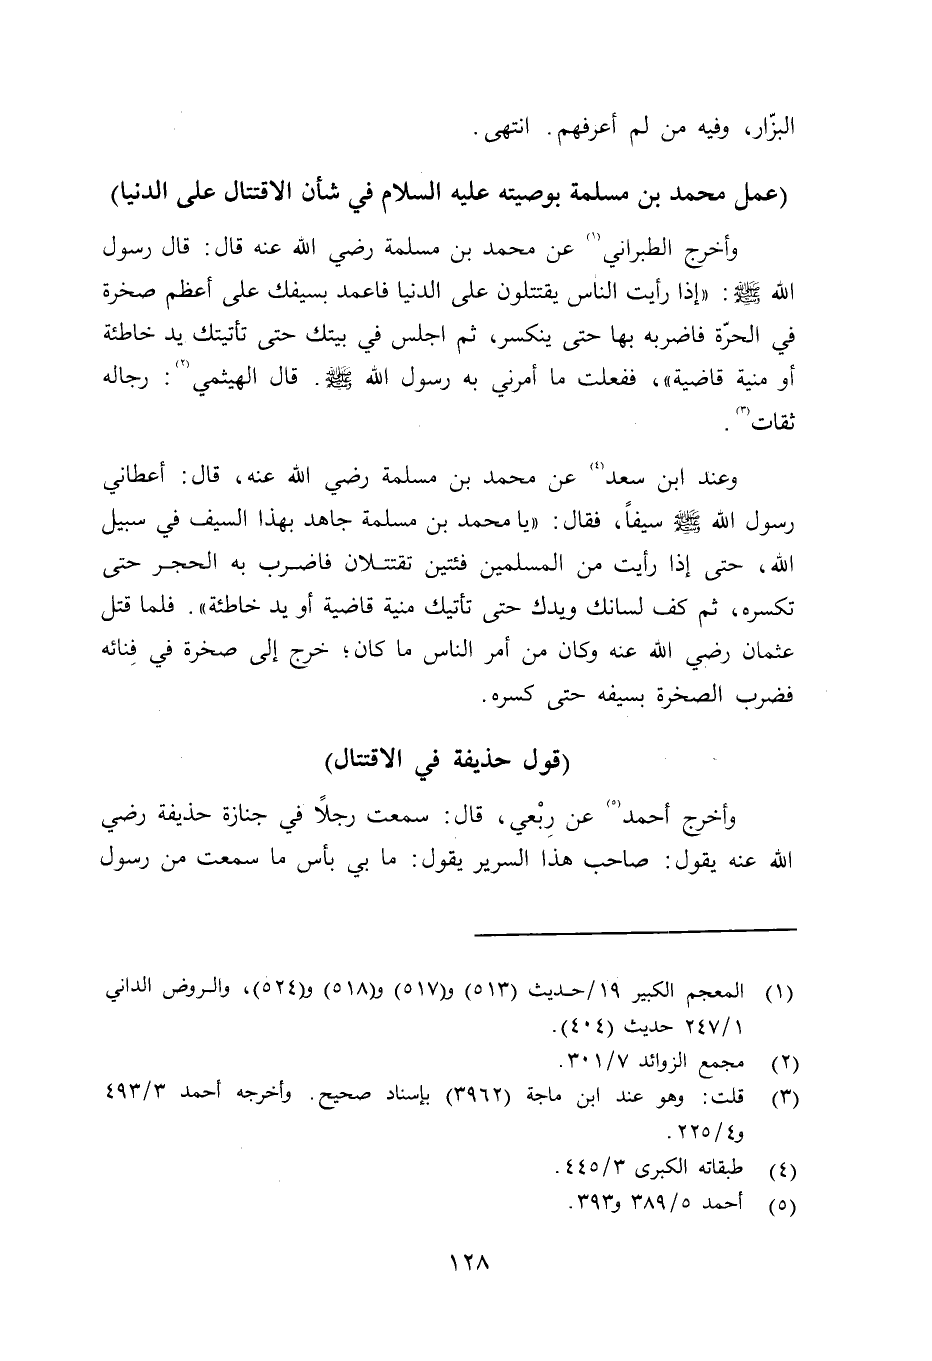 البزّار، وفيه من لم أعرفهم. انتهى.
(عمل محمد بن مسلمة بوصيته عليه السلام في شأن الاقتتال على الدنيا)
وأخرج الطبراني(١) عن محمد بن مسلمة رضي الله عنه قال: قال رسول
الله ﷺ: «إذا رأيت الناس يقتتلون على الدنيا فاعمد بسيفك على أعظم صخرة
في الحرّة فاضربه بها حتى ينكسر، ثم اجلس في بيتك حتى تأتيتك يد خاطئة
أو منية قاضية»، ففعلت ما أمرني به رسول الله ﷺ. قال الهيثمي(٢): رجاله
ثقات(٣).
وعند ابن سعد(٤) عن محمد بن مسلمة رضي الله عنه، قال: أعطاني
رسول الله ﷺ سيفاً، فقال: «يا محمد بن مسلمة جاهد بهذا السيف في سبيل
الله، حتى إذا رأيت من المسلمين فئتين تقتتلان فاضرب به الحجر حتى
تكسره، ثم كف لسانك ويدك حتى تأتيك منية قاضية أو يد خاطئة». فلما قتل
عثمان رضي الله عنه وكان من أمر الناس ما كان؛ خرج إلى صخرة في فِنائه
فضرب الصخرة بسيفه حتى كسره.
(قول حذيفة في الاقتتال)
وأخرج أحمد(٥) عن رِبْعي، قال: سمعت رجلاً في جنازة حذيفة رضي
الله عنه يقول: صاحب هذا السرير يقول: ما بي بأس ما سمعت من رسول
(١) المعجم الكبير ١٩/حديث (٥١٣) و(٥١٧) و(٥١٨) و(٥٢٤)، والروض الداني
٢٤٧/١ حديث (٤٠٤).
(٢) مجمع الزوائد ٣٠١/٧.
(٣) قلت: وهو عند ابن ماجة (٣٩٦٢) بإسناد صحيح. وأخرجه أحمد ٤٩٣/٣
و٢٢٥/٤.
(٤) طبقاته الكبرى ٤٤٥/٣.
(٥) أحمد ٣٨٩/٥ و٣٩٣.
١٢٨